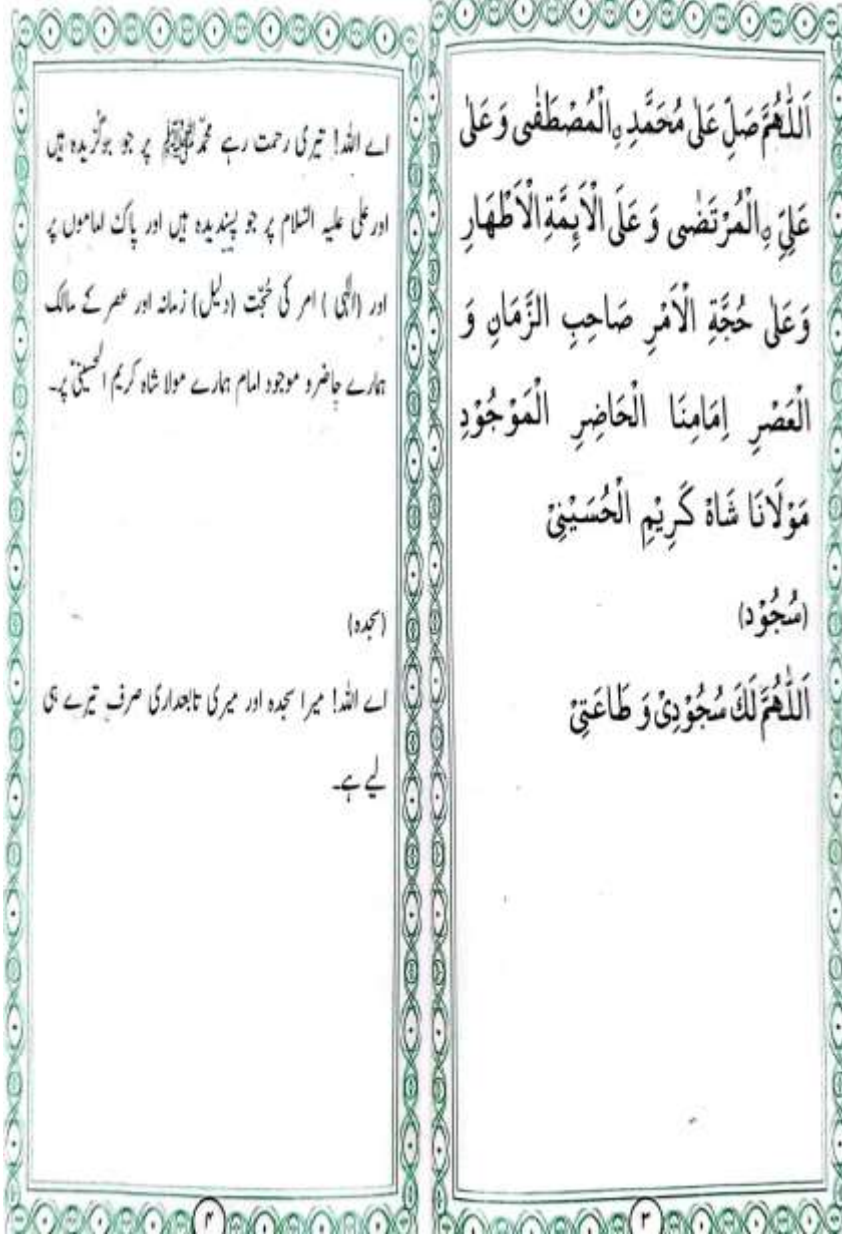 اَللّٰهُمَّ صَلِّ عَلٰى مُحَمَّدِ ۣالْمُصْطَفٰى وَ عَلٰى
عَلِيِّ ۣالْمُرْتَضٰى وَ عَلَى الْاَئِمَّةِ الْاَطْهَارِ
وَعَلٰى حُجَّةِ الْاَمْرِ صَاحِبِ الزَّمَانِ وَ
الْعَصْرِ اِمَامِنَا الْحَاضِرِ الْمَوْجُوْدِ
مَوْلَانَا شَاهْ كَرِيْمِ الْحُسَيْنِيْ
(سُجُوْد)
اَللّٰهُمَّ لَكَ سُجُوْدِيْ وَ طَاعَتِيْ
۳
اے اللہ! تیری رحمت رہے محمّد ﷺ پر جو برگزیدہ ہیں
اور علی علیہ السّلام پر جو پسندیدہ ہیں اور پاک اماموں پر
اور (الٰہی) امر کی حُجّت (دلیل) زمانہ اور عصر کے مالک
ہمارے حاضر و موجود امام ہمارے مولا شاہ کریم الحسینی پر۔
(سجدہ)
اے اللہ! میرا سجدہ اور میری تابعداری صرف تیرے ہی
لیے ہے۔
۴